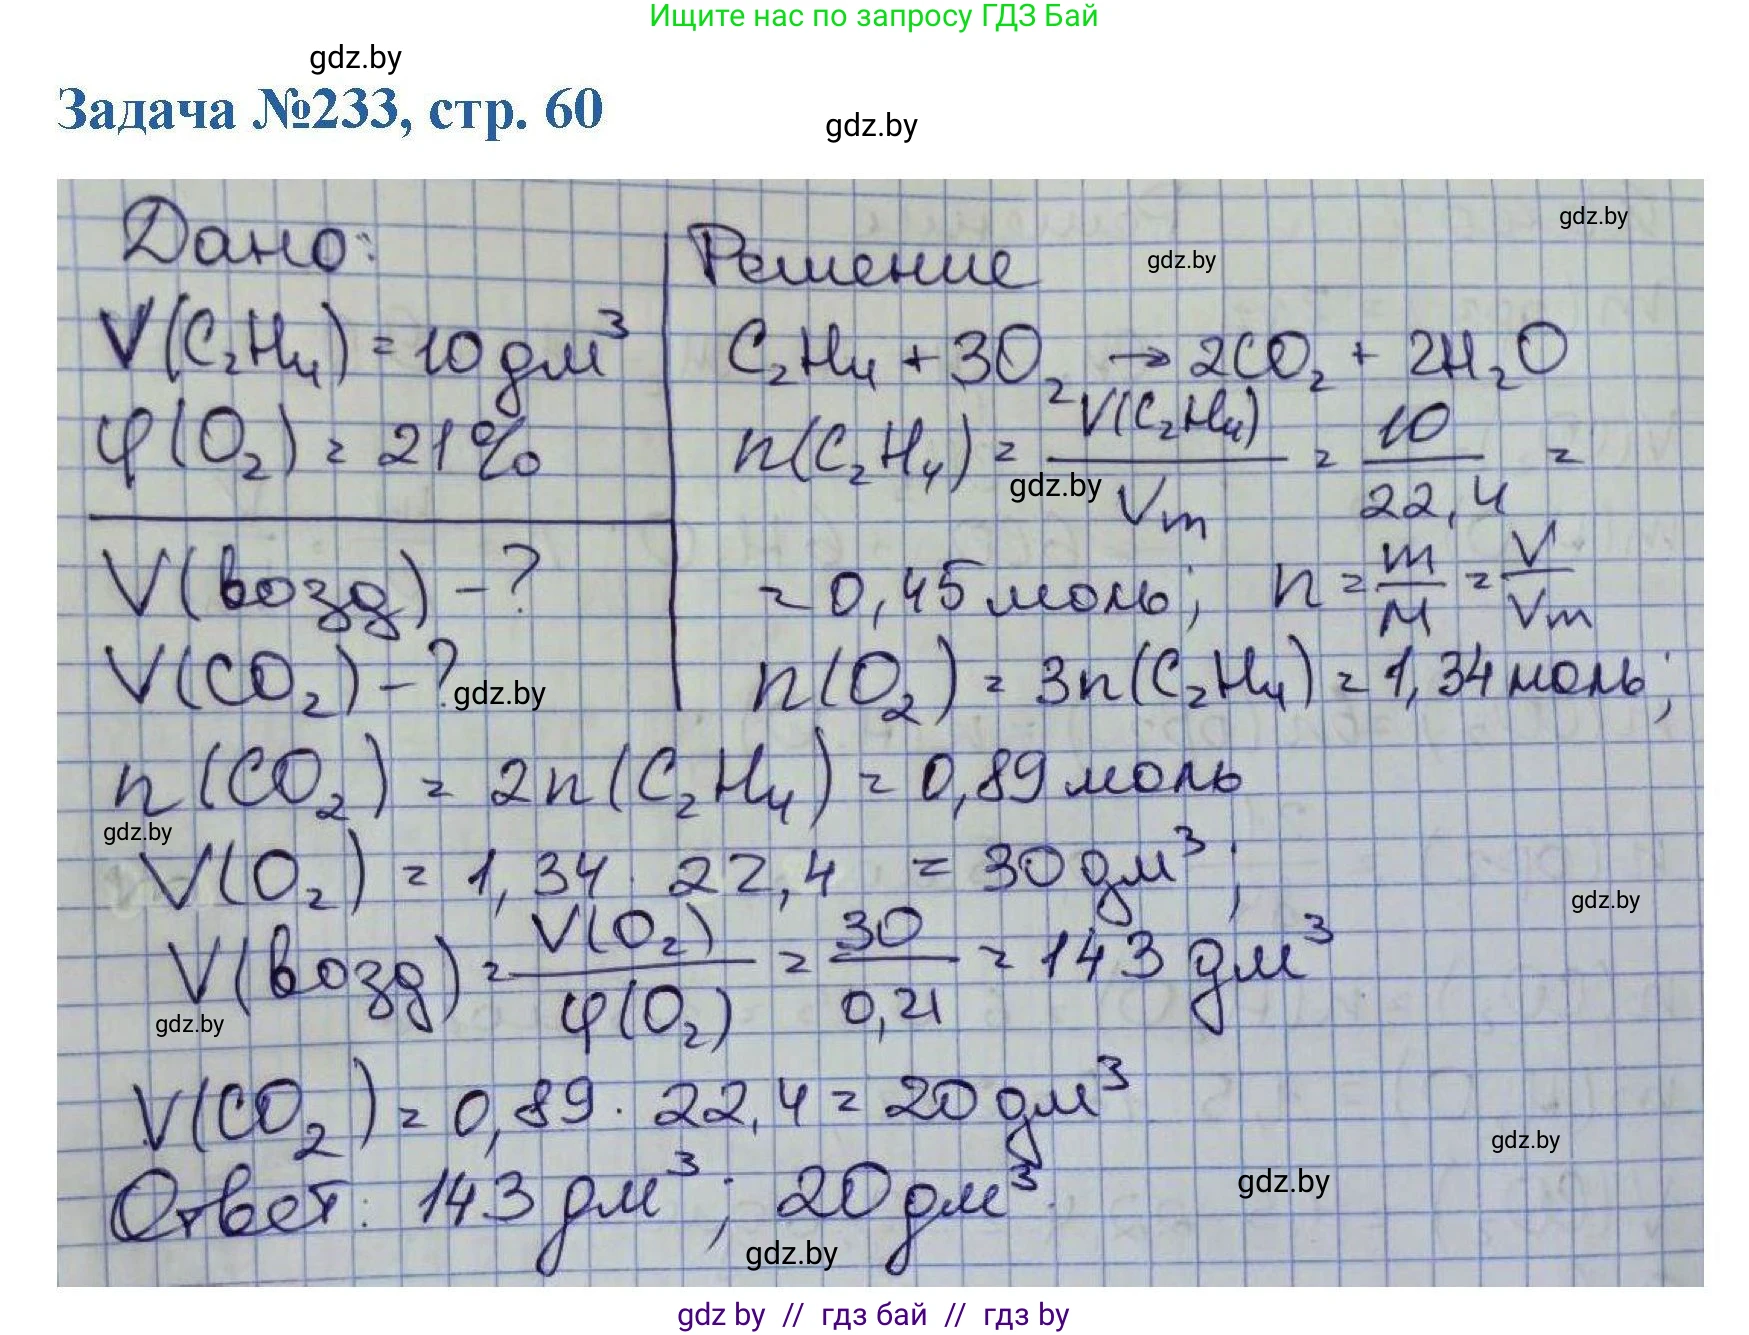 Ищите нас по запросу ГДЗ Бай
gdz.by
Задача №233, стр. 60
gdz.by
gdz.by
Дано:
Решение
gdz.by
V(C₂H₄) = 10 дм³
C₂H₄ + 3O₂ → 2CO₂ + 2H₂O
φ(O₂) = 21%
n(C₂H₄) = V(C₂H₄) / Vm = 10 / 22,4 =
gdz.by
V(возд) - ?
= 0,45 моль; n = m/M = V/Vm
V(CO₂) - ?
gdz.by
n(O₂) = 3n(C₂H₄) = 1,34 моль;
n(CO₂) = 2n(C₂H₄) = 0,89 моль
gdz.by
V(O₂) = 1,34 · 22,4 = 30 дм³;
gdz.by
V(возд) = V(O₂) / φ(O₂) = 30 / 0,21 = 143 дм³
gdz.by
V(CO₂) = 0,89 · 22,4 = 20 дм³
gdz.by
Ответ: 143 дм³; 20 дм³.
gdz.by
gdz.by
gdz by // гдз бай // гдз by